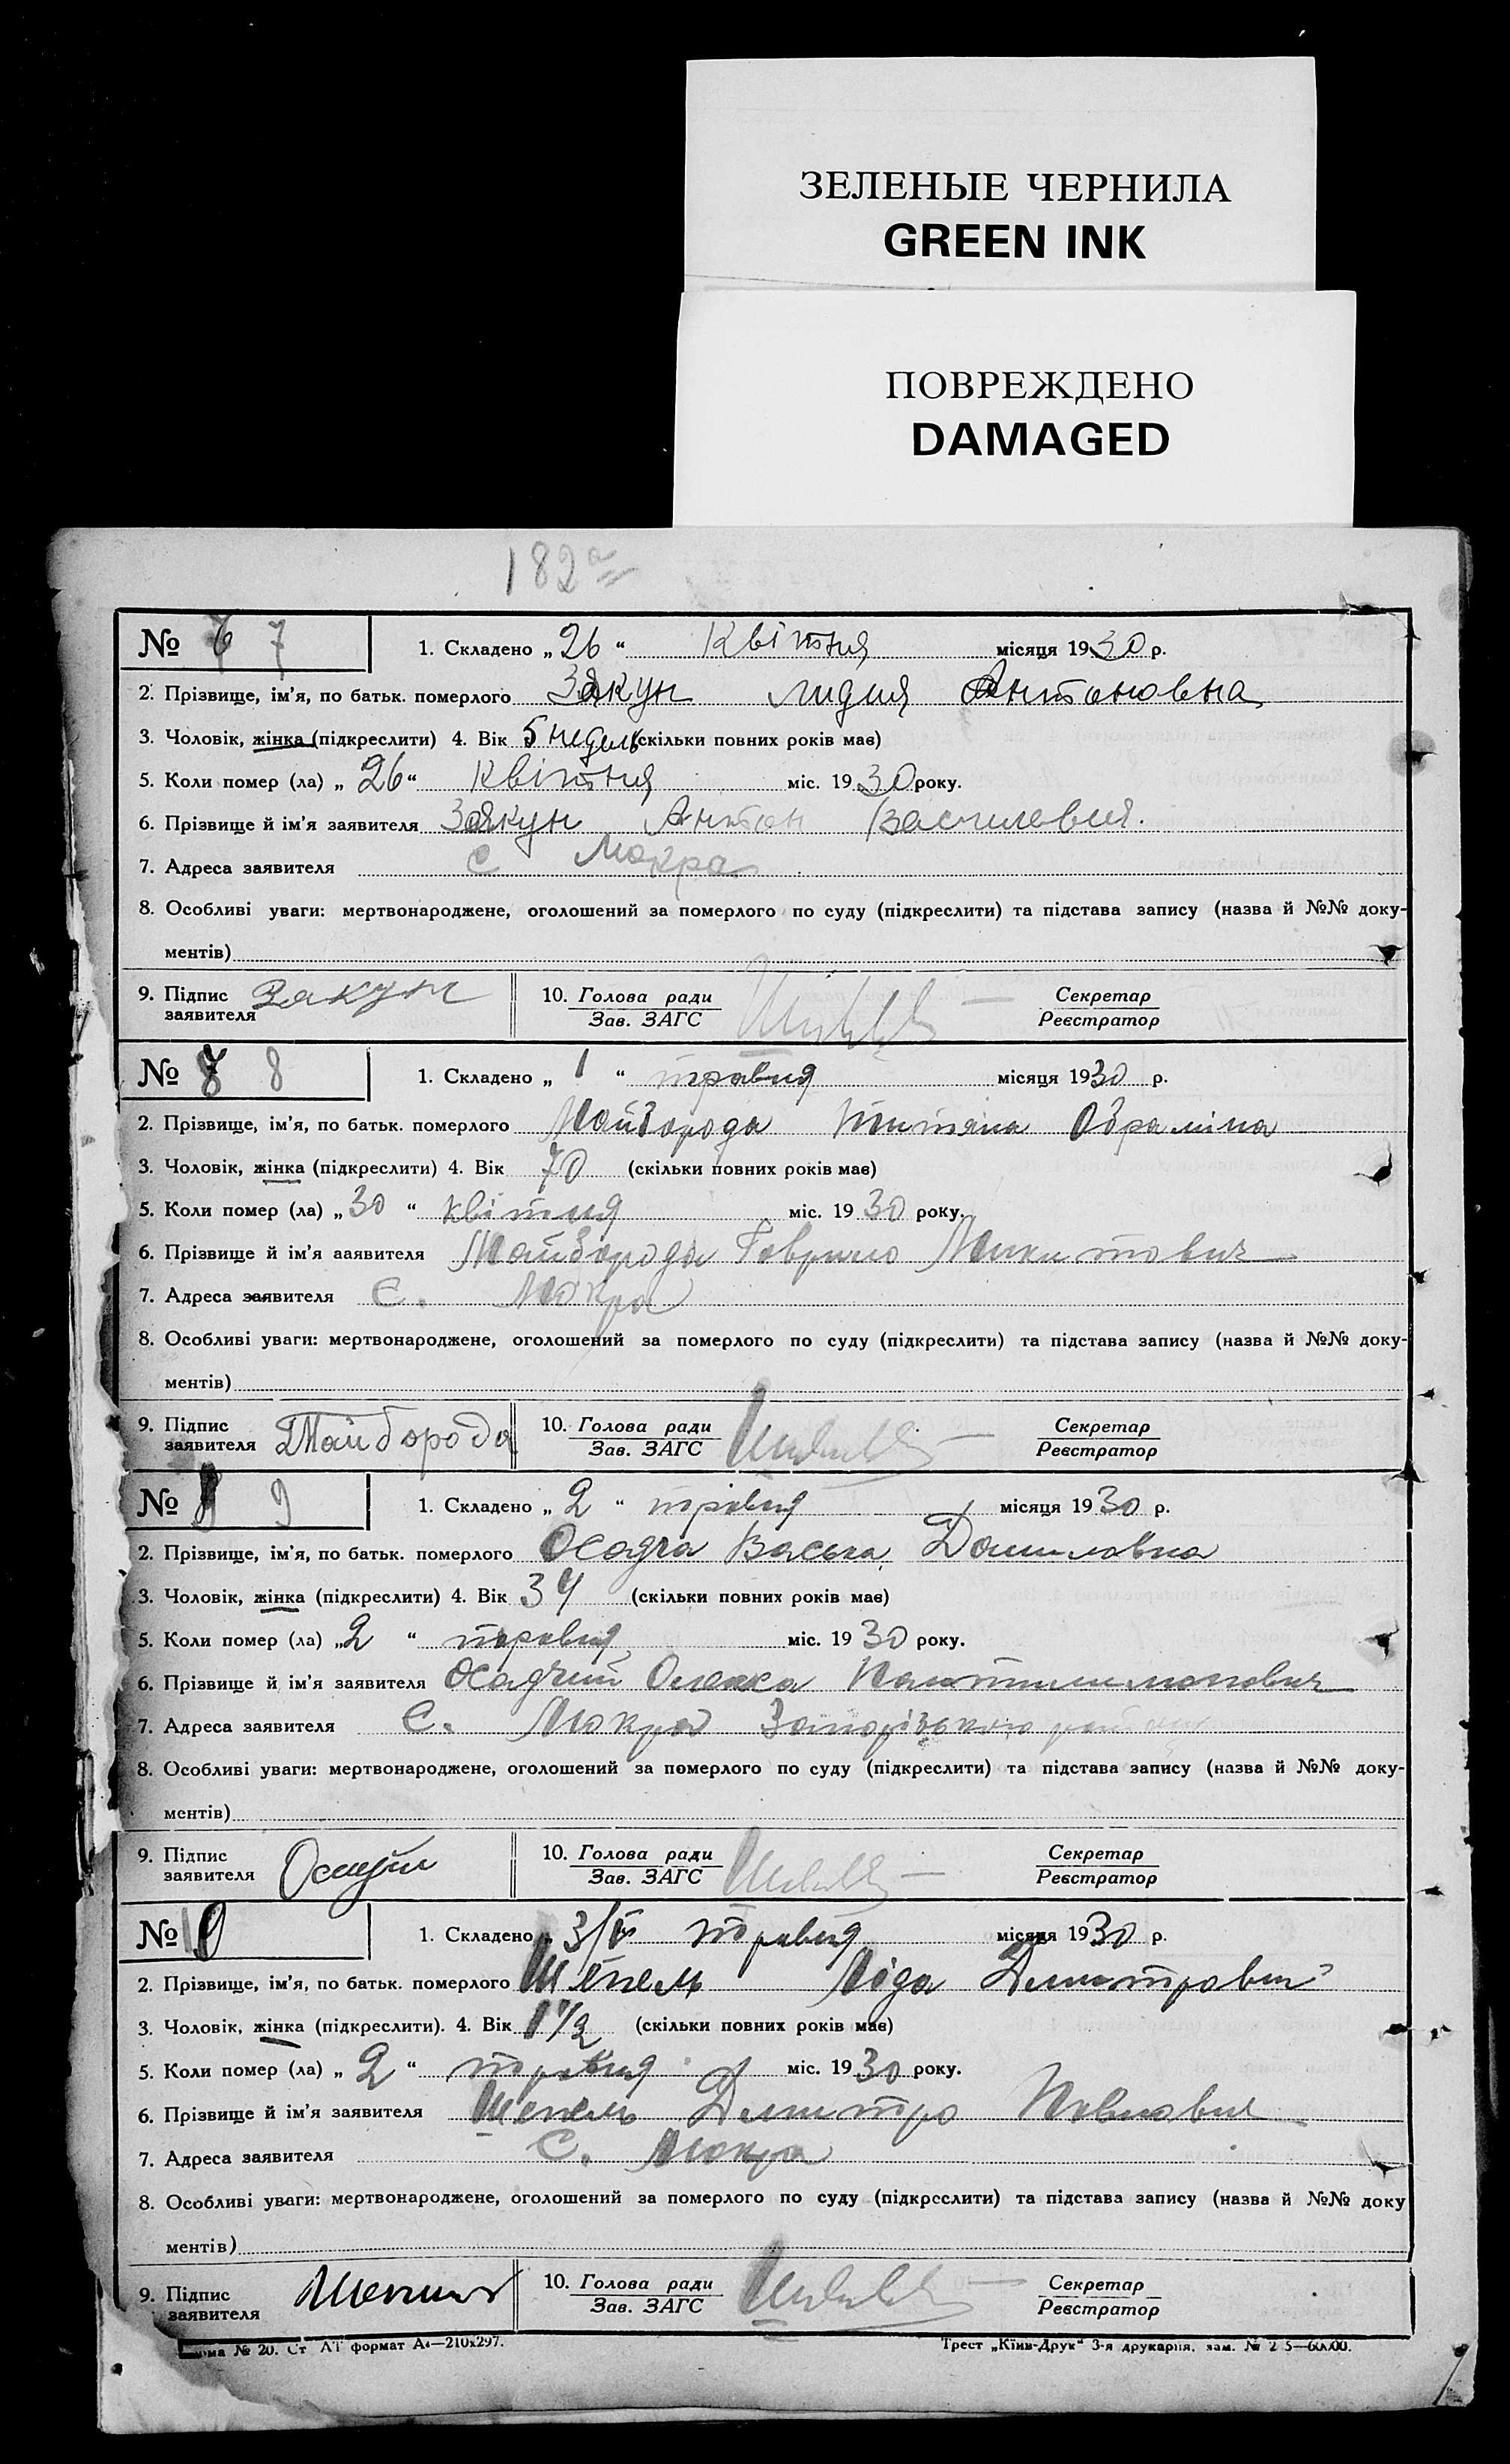 ЗЕЛЕНЫЕ ЧЕРНИЛА
GREEN INK
ПОВРЕЖДЕНО
DAMAGED
182а
№ 7 1. Складено „ 26 “ Квітня місяця 1930 р.
2. Прізвище, ім’я, по батьк. померлого Заякун Лидия Антоновна
3. Чоловік, жінка (підкреслити) 4. Вік 5 недель (скільки повних років має)
5. Коли помер (ла) „ 26 “ Квітня міс. 1930 року.
6. Прізвище й ім’я заявителя Заякун Антон Василевич.
7. Адреса заявителя С Мокра
8. Особливі уваги: мертвонароджене, оголошений за померлого по суду (підкреслити) та підстава запису (назва й №№ доку-
ментів)
9. Підпис заявителя Заякун 10. Голова ради Зав. ЗАГС Секретар Реєстратор
№ 8 1. Складено „ 1 “ травня місяця 1930 р.
2. Прізвище, ім’я, по батьк. померлого Майборода Титяна Обраміна
3. Чоловік, жінка (підкреслити) 4. Вік 70 (скільки повних років має)
5. Коли помер (ла) „ 30 “ квітня міс. 1930 року.
6. Прізвище й ім’я ааявителя Майборода Гаврило Микитович
7. Адреса заявителя С. Мокра
8. Особливі уваги: мертвонароджене, оголошений за померлого по суду (підкреслити) та підстава запису (назва й №№ доку-
ментів)
9. Підпис заявителя Майборода 10. Голова ради Зав. ЗАГС Секретар Реєстратор
№ 9 1. Складено „ 2 “ травня місяця 1930 р.
2. Прізвище, ім’я, по батьк. померлого Осадча Васька Даниловна
3. Чоловік, жінка (підкреслити) 4. Вік 34 (скільки повних років має)
5. Коли помер (ла) „ 2 “ травня міс. 1930 року.
6. Прізвище й ім’я заявителя Осадчий Олекса Пантилимонович
7. Адреса заявителя С. Мокра Запорізького району
8. Особливі уваги: мертвонароджене, оголошений за померлого по суду (підкреслити) та підстава запису (назва й №№ доку-
ментів)
9. Підпис заявителя 10. Голова ради Зав. ЗАГС Секретар Реєстратор
№ 1. Складено „ 3/V травня місяця 1930 р.
2. Прізвище, ім’я, по батьк. померлого Шепель Ліда Дмитровн
3. Чоловік, жінка (підкреслити). 4. Вік 1 1/2 (скільки повних років має)
5. Коли помер (ла) „ 2 “ травня міс. 1930 року.
6. Прізвище й ім’я заявителя Шепель Дмитро Павлович
7. Адреса заявителя С. Мокра
8. Особливі уваги: мертвонароджене, оголошений за померлого по суду (підкреслити) та підстава запису (назва й №№ доку
ментів)
9. Підпис заявителя 10. Голова ради Зав. ЗАГС Секретар Реєстратор
№ 20. Ст АТ формат А4—210x297. Трест „Київ-Друк“ 3-я друкарня. зам.